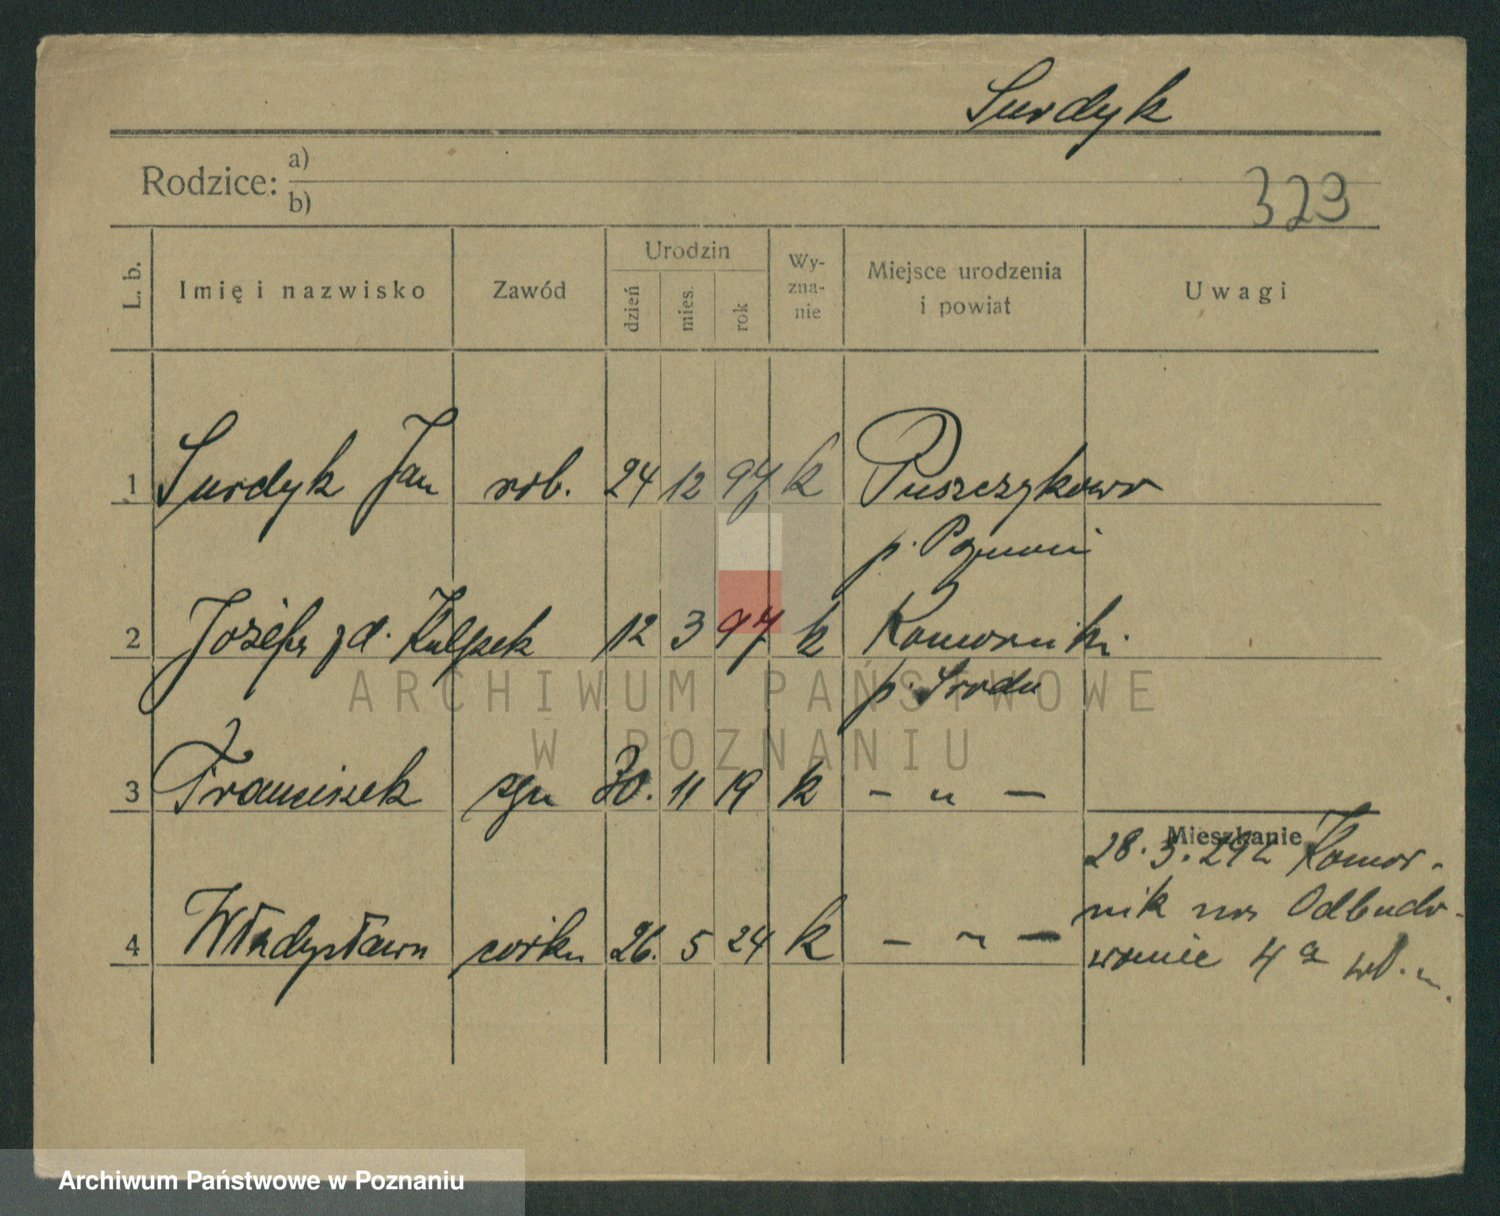 Surdyk
Rodzice: a)
b)
323
L. b.
Imię i nazwisko
Zawód
Urodzin
dzień
mies.
rok
Wy-
zna-
nie
Miejsce urodzenia
i powiat
Uwagi
1 Surdyk Jan rob. 24 12 97 k Puszczykowo
p. Poznań
2 Józefa zd. 12 3 97 k Komorniki
p. Środa
3 Franciszek syn 30. 11 19 k - „ -
Mieszkanie
4 Władysława córka 26. 5 24 k - „ -
28. 3. 29 z Komor-
nik na Odbudo-
wanie 4a
ARCHIWUM PAŃSTWOWE
W POZNANIU
Archiwum Państwowe w Poznaniu